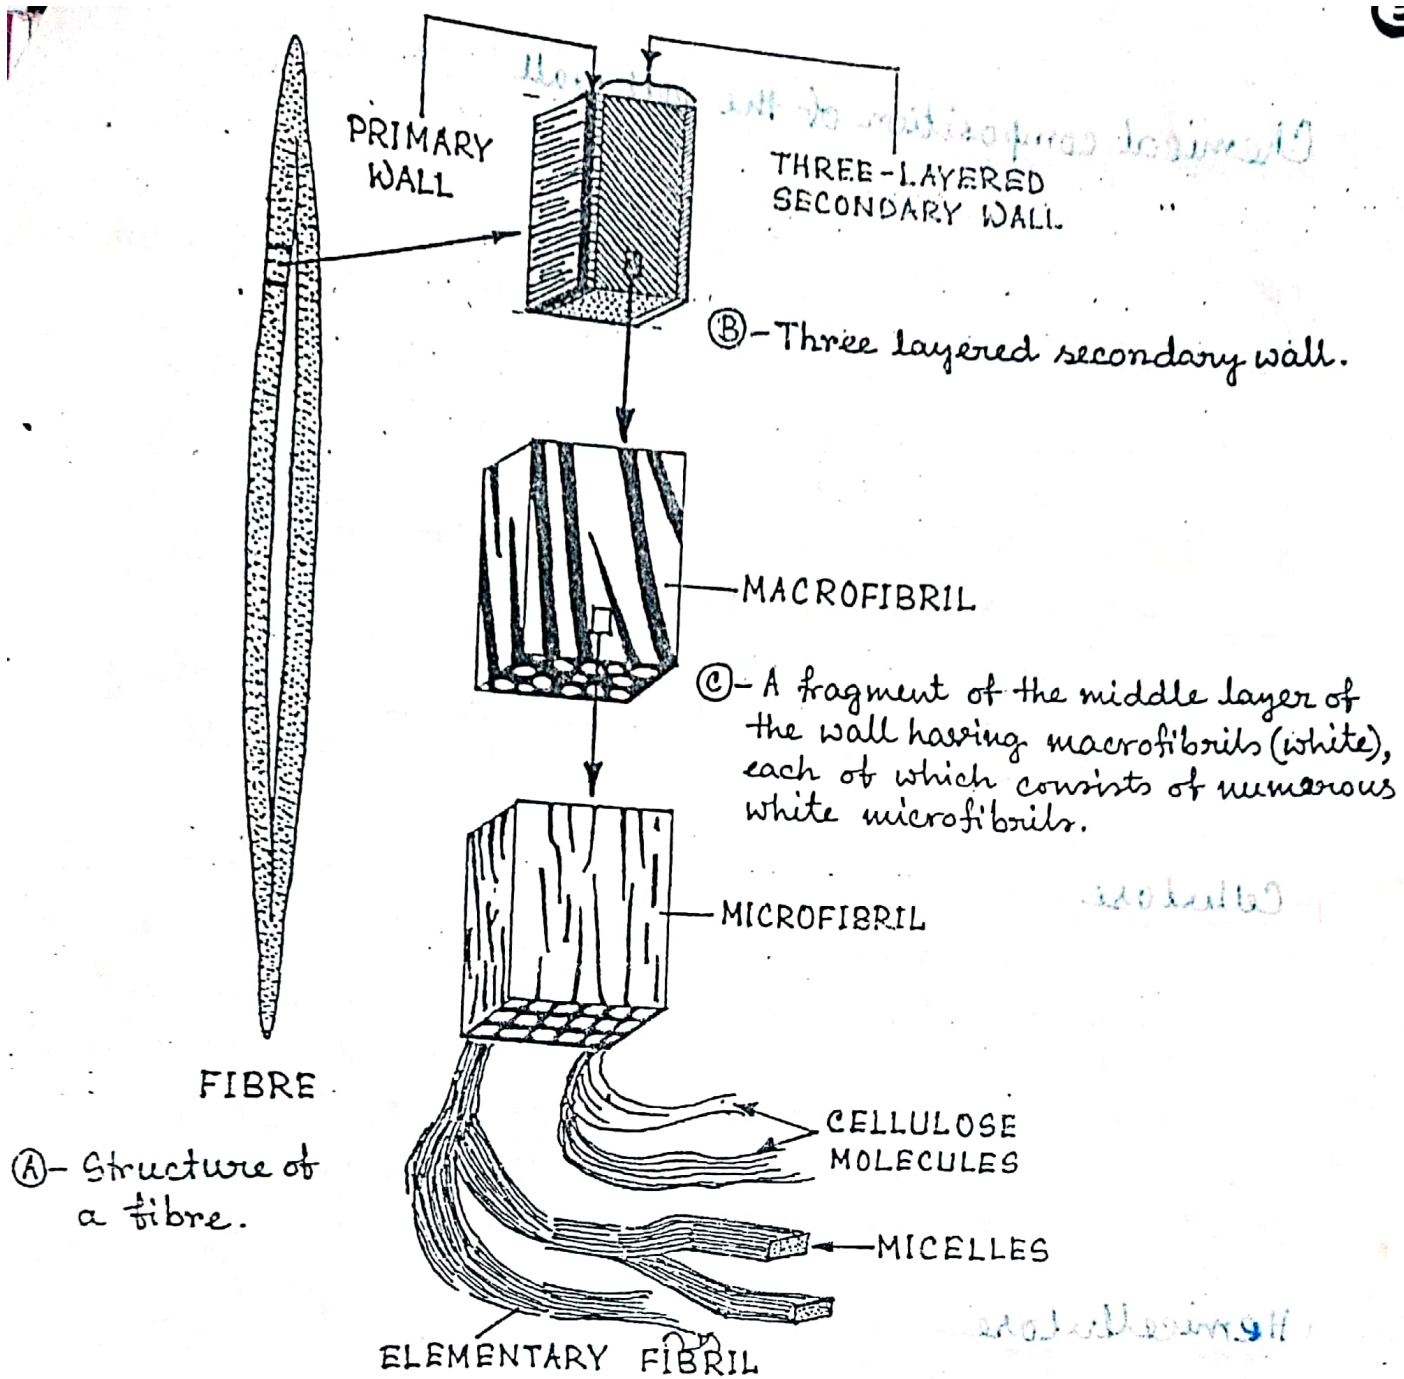 PRIMARY
WALL
THREE-LAYERED
SECONDARY WALL
Ⓑ- Three layered secondary wall.
MACROFIBRIL
Ⓒ- A fragment of the middle layer of
the wall having macrofibrils (white),
each of which consists of numerous
white microfibrils.
MICROFIBRIL
FIBRE
Ⓐ- Structure of
a fibre.
CELLULOSE
MOLECULES
MICELLES
ELEMENTARY FIBRIL
Chemical composition of the cell wall
Cellulose
Hemicellulose